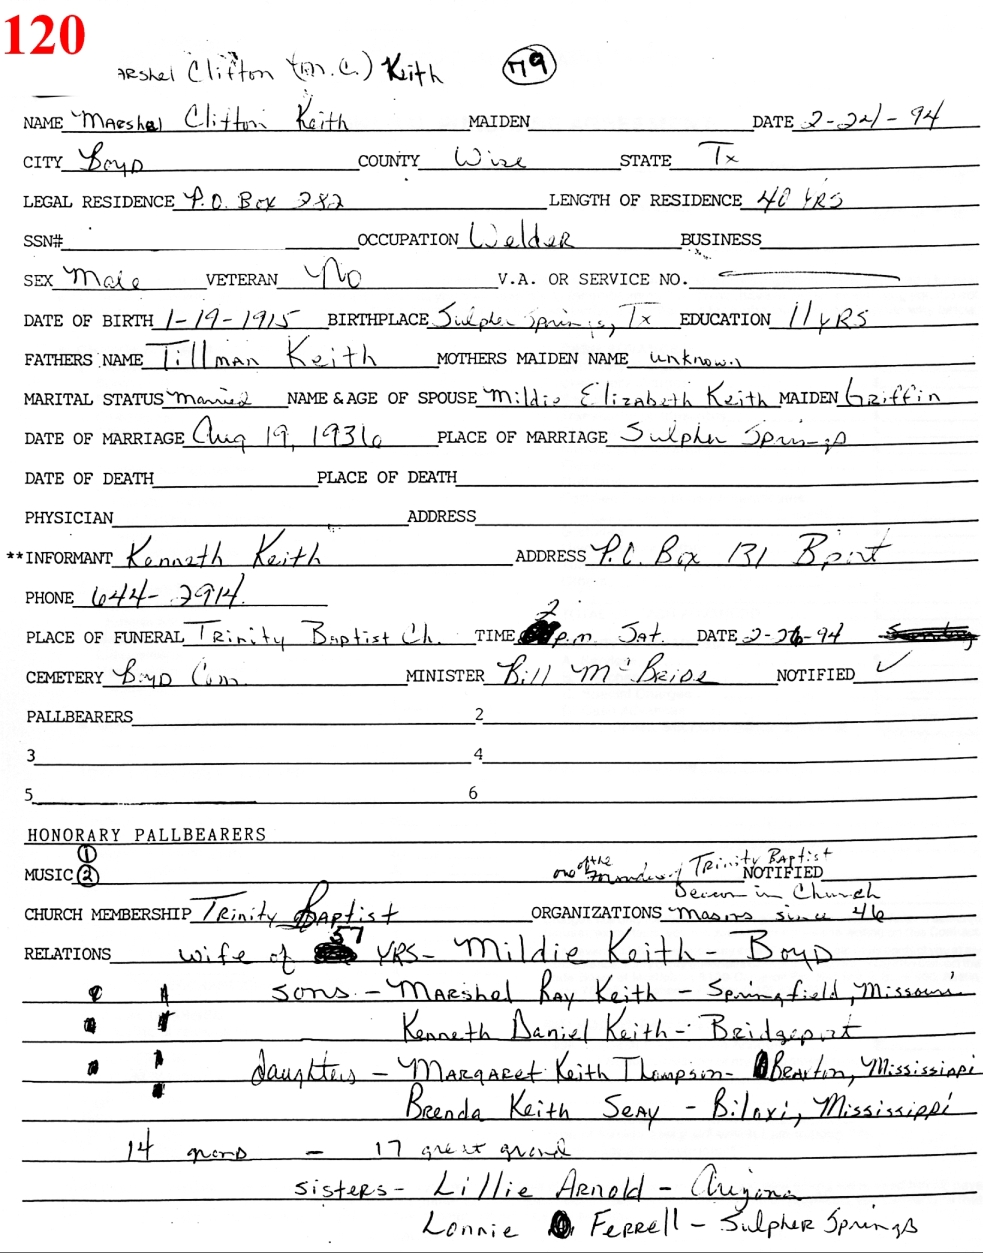 120
arshel Clifton (M.C.) Keith 79
NAME Marshal Clifton Keith MAIDEN DATE 2-24-94
CITY Boyd COUNTY Wise STATE Tx
LEGAL RESIDENCE P.O. Box 282 LENGTH OF RESIDENCE 40 YRS
SSN# OCCUPATION Welder BUSINESS
SEX Male VETERAN No V.A. OR SERVICE NO.
DATE OF BIRTH 1-19-1915 BIRTHPLACE Sulpher Springs, Tx EDUCATION 11 YRS
FATHERS NAME Tillman Keith MOTHERS MAIDEN NAME unknown
MARITAL STATUS Married NAME & AGE OF SPOUSE Mildie Elizabeth Keith MAIDEN Griffin
DATE OF MARRIAGE Aug 19, 1936 PLACE OF MARRIAGE Sulpher Springs
DATE OF DEATH PLACE OF DEATH
PHYSICIAN ADDRESS
**INFORMANT Kenneth Keith ADDRESS P.O. Box 131 Bport
PHONE 644-2914
PLACE OF FUNERAL Trinity Baptist Ch. TIME 2 p.m. Sat. DATE 2-26-94
CEMETERY Boyd Cem. MINISTER Bill McBride NOTIFIED ✓
PALLBEARERS 2
3 4
5 6
HONORARY PALLBEARERS
①
MUSIC ② NOTIFIED
one of the founders of Trinity Baptist
Deacon in Church
CHURCH MEMBERSHIP Trinity Baptist ORGANIZATIONS Masons since 46
RELATIONS wife of 57 YRS- Mildie Keith - Boyd
sons - Marshal Ray Keith - Springfield, Missouri
Kenneth Daniel Keith - Bridgeport
daughters - Margaret Keith Thompson - Braxton, Mississippi
Brenda Keith Seay - Biloxi, Mississippi
14 grand - 17 great grand
sisters - Lillie Arnold - Arizona
Lonnie Ferrell - Sulpher Springs